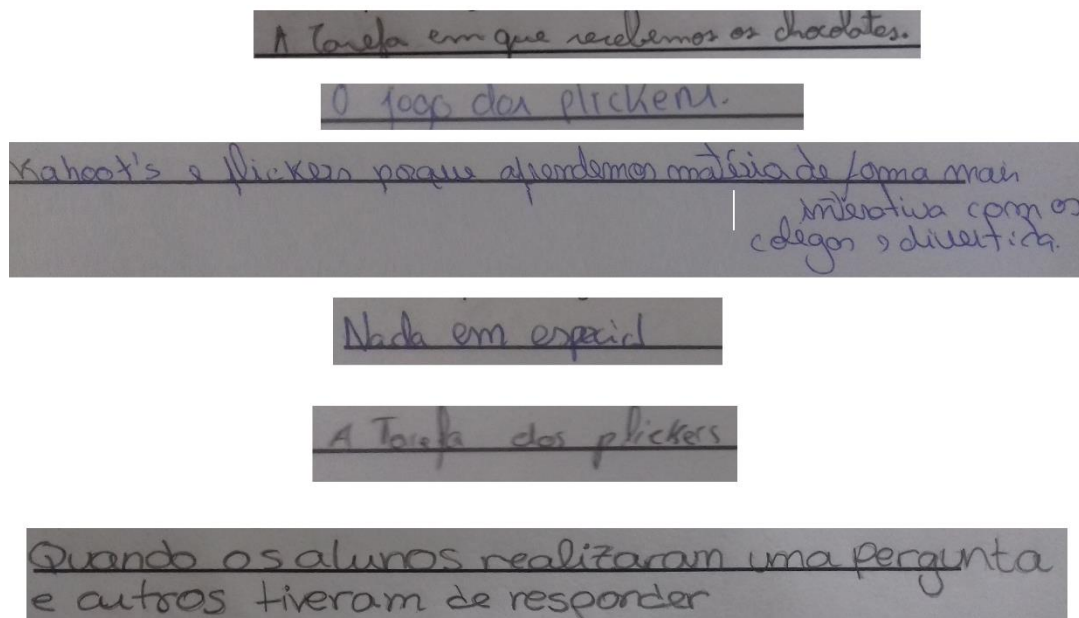 A Tarefa em que recebemos os chocolates.
O jogo dos plickers.
Kahoot's e Plickers poque aprendemos matéria de forma mais
interativa com os
colegas e divertida.
Nada em especial
A Tarefa dos plickers
Quando os alunos realizaram uma pergunta
e outros tiveram de responder